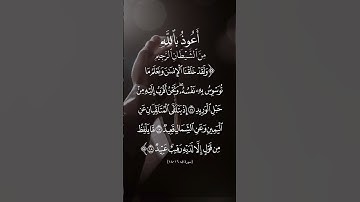 أَعُوذُ بِٱللَّهِ
مِنَ ٱلشَّيْطَانِ ٱلرَّجِيمِ
﴿وَلَقَدْ خَلَقْنَا ٱلْإِنسَٰنَ وَنَعْلَمُ مَا
تُوَسْوِسُ بِهِۦ نَفْسُهُۥ ۖ وَنَحْنُ أَقْرَبُ إِلَيْهِ مِنْ
حَبْلِ ٱلْوَرِيدِ ۝١٦ إِذْ يَتَلَقَّى ٱلْمُتَلَقِّيَانِ عَنِ
ٱلْيَمِينِ وَعَنِ ٱلشِّمَالِ قَعِيدٌ ۝١٧ مَّا يَلْفِظُ
مِن قَوْلٍ إِلَّا لَدَيْهِ رَقِيبٌ عَتِيدٌ ۝١٨﴾
(سورة ق: ١٦-١٨)